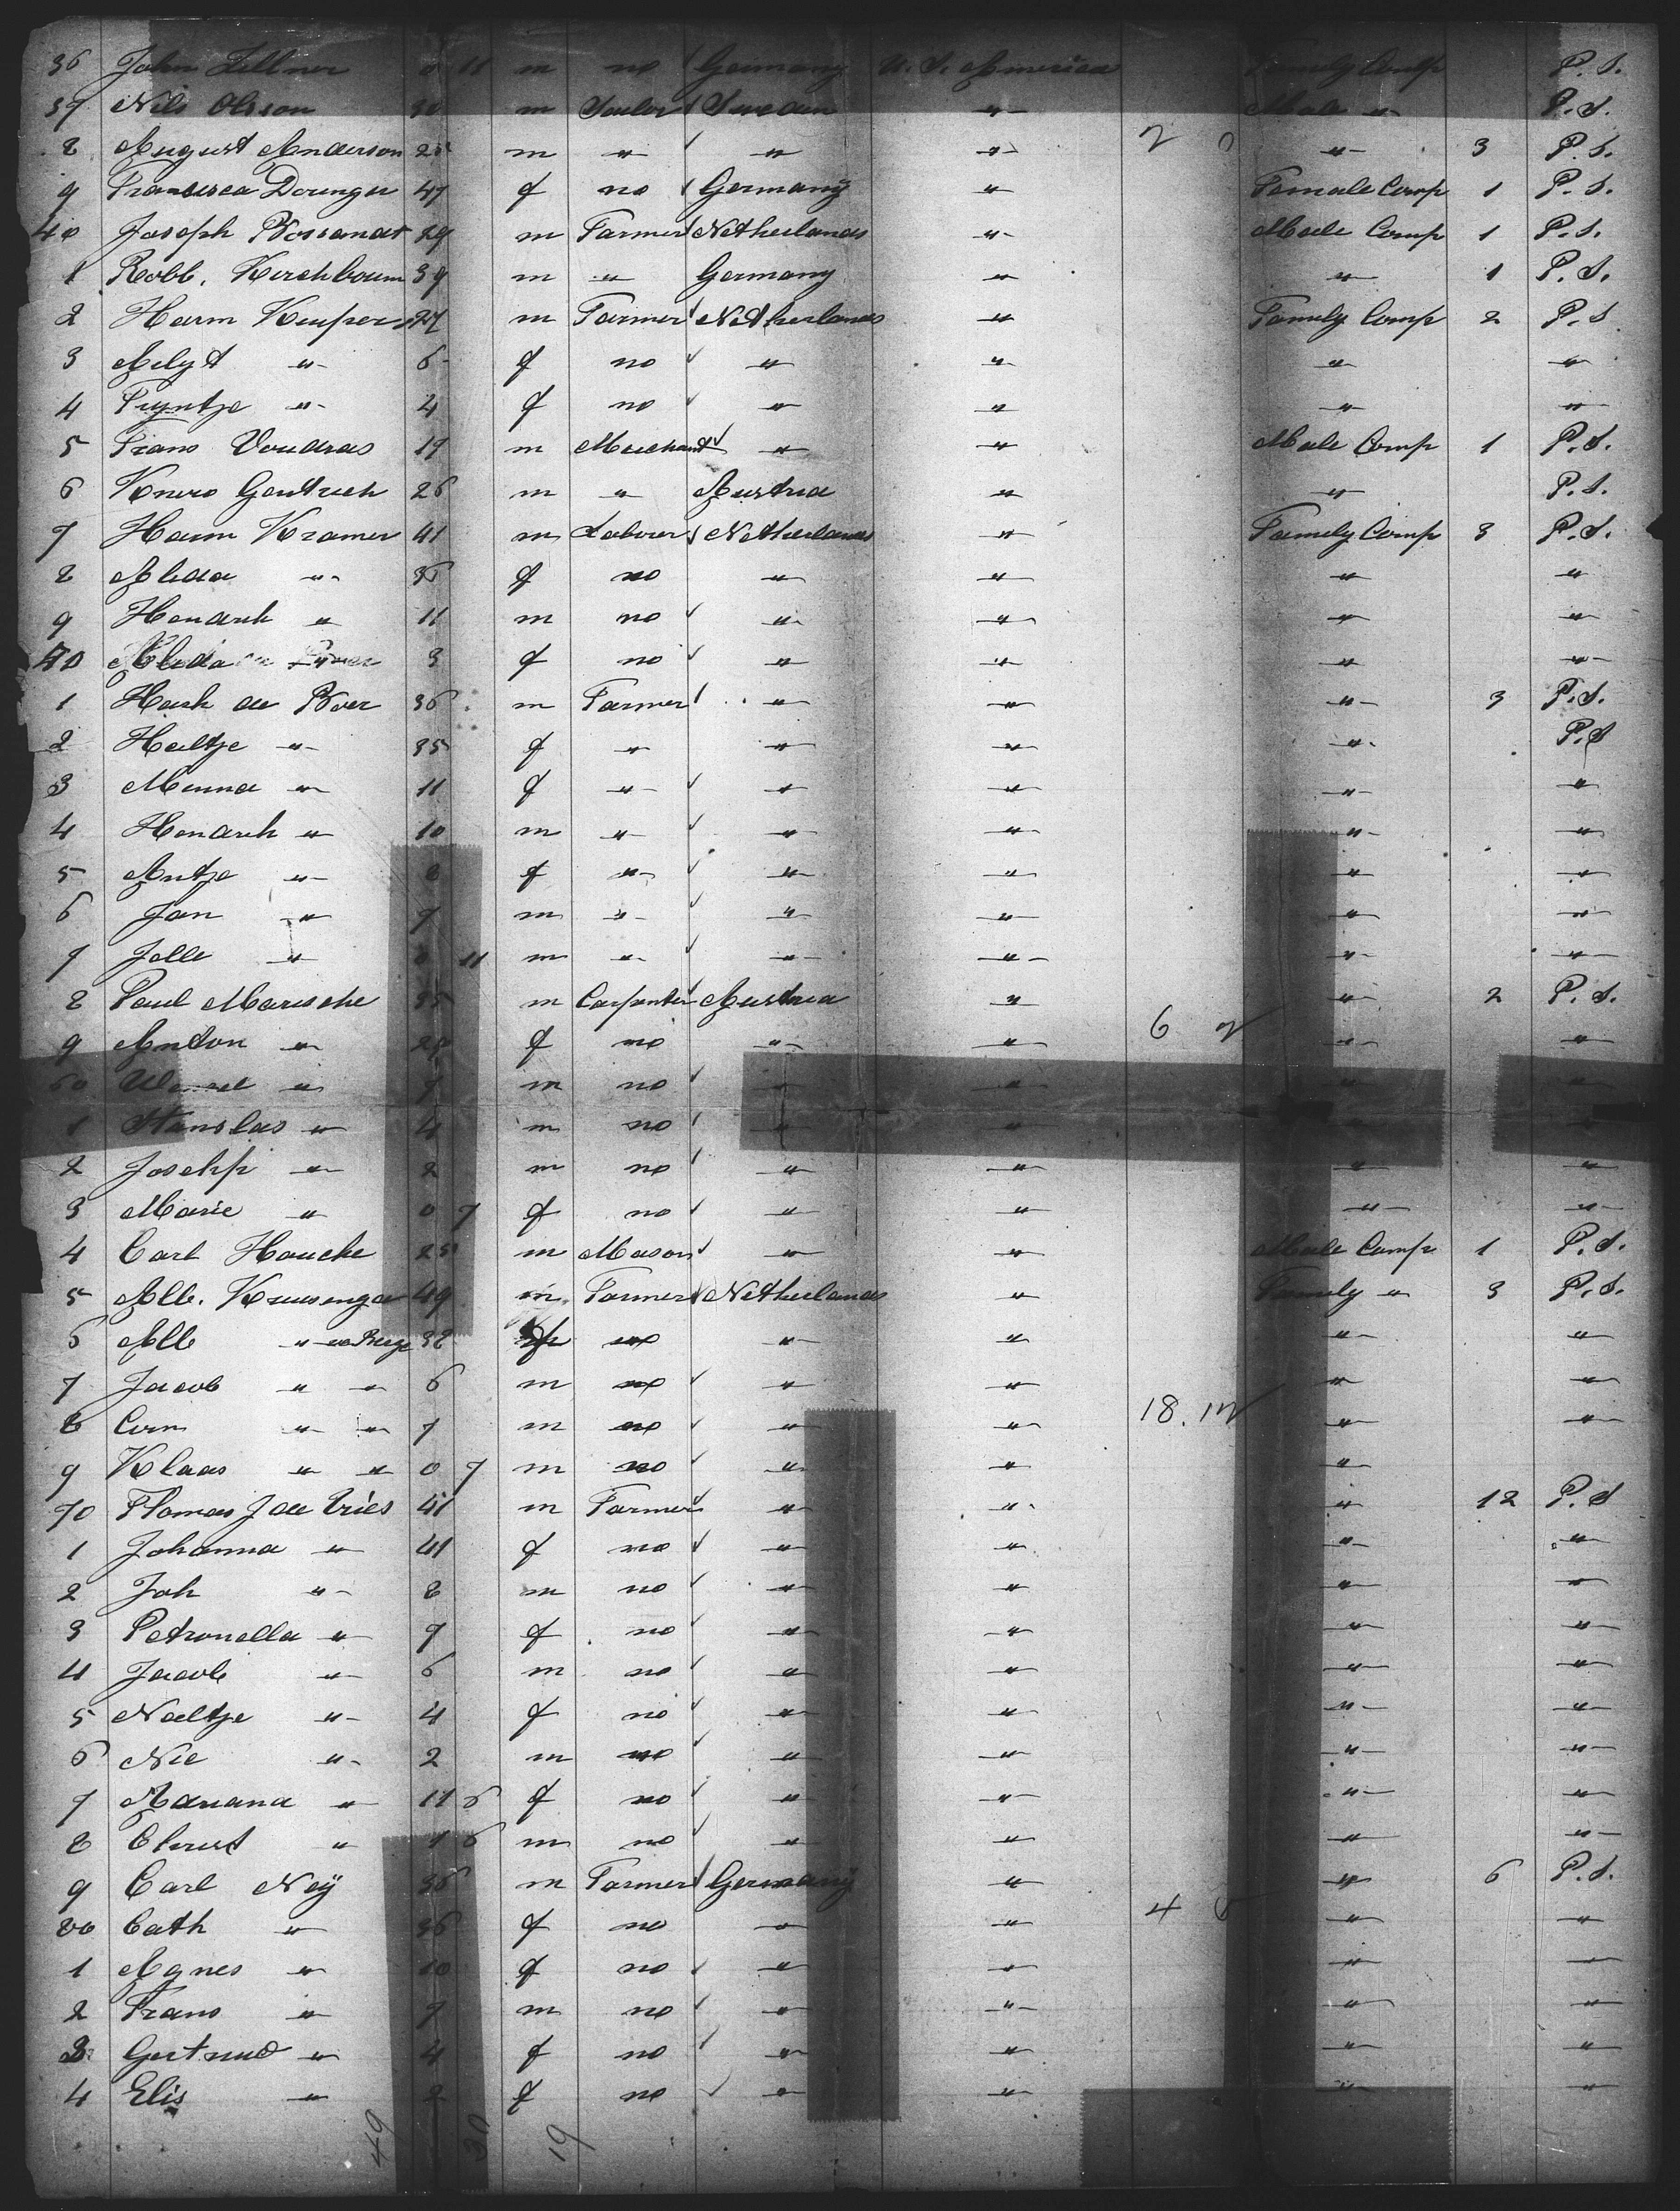 36 John Zellner 0 11 m no Germany U. S. America Family Comp P. S.
37 Nils Olsson 30 m Sailor Sweden " Male " P. S.
8 August Anderson 25 m " " " 2 0 " 3 P. S.
9 Francisca 47 f no Germany " Female Comp 1 P. S.
40 Joseph 29 m Farmer Netherlands " Male Comp 1 P. S.
1 Robb. Kerchboum 39 m " Germany " " 1 P. S.
2 Harm Kuipers 27 m Farmer Netherlands " Family Comp 2 P. S
3 " 6 f no " " " "
4 Tryntje " 4 f no " " " "
5 Frans 19 m Merchant " " Male Comp 1 P. S.
6 26 m " Austria " " P. S.
7 Harm Kramer 41 m Laborer Netherlands " Family Comp 3 P. S.
8 Alida " 36 f no " " " "
9 Hendrik " 11 m no " " " "
Alida " 3 f no " " " "
1 Hark de Boer 36 m Farmer " " " 3 P. S.
2 Heltje " 35 f " " " " P. S
3 Menna " 11 f " " " " "
4 Hendrik " 10 m " " " " "
5 Antje " 8 f " " " " "
6 Jan " 7 m " " " " "
7 Jelle " 0 11 m " " " " "
8 Paul Marische 35 m Carpenter Austria " " 2 P. S.
9 Anton " f no " " 6 " "
60 Wenzel " 7 m no " " " "
1 Stanslas " 4 m no " " "
2 Josehp " 2 m no " " " "
3 Marie " 0 7 f no " " " "
4 Carl Hauche 25 m Mason " " Male Comp 1 P. S.
5 Alb. 49 m Farmer Netherlands " Family " 3 P. S.
6 Alb " 32 f no " " " "
7 Jacob " " 6 m no " " " "
8 " " 7 m no " " 18. " "
9 Klaas " " 0 7 m no " " "
70 Thomas J de Vries 41 m Farmer " " " 12 P. S
1 Johanna " 41 f no " " " "
2 Joh " 8 m no " " " "
3 Petronella " 7 f no " " " "
4 Jacob " 6 m no " " " "
5 Neeltje " 4 f no " " " "
6 Nic " 2 m no " " " "
7 " 11 6 f no " " " "
8 Christ " 1 6 m no " " " "
9 Carl Neÿ 36 m Farmer Germany " " 6 P. S.
80 Cath " 36 f no " " 4 " "
1 Agnes " 10 f no " " " "
2 Frans " 7 m no " " " "
3 Gertrud " 4 f no " " " "
4 Elis " 2 f no " " " "
49 30 19